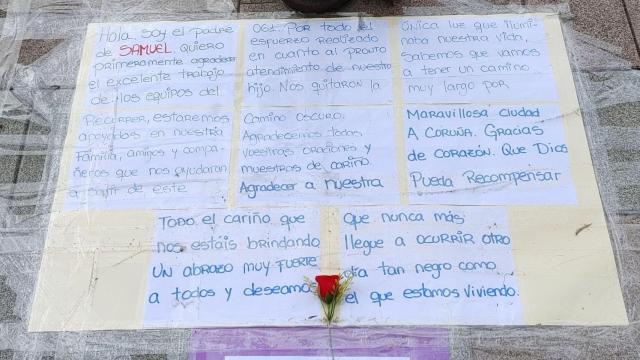 Hola. Soy el padre
de SAMUEL. Quiero
primeramente agradecer
el excelente trabajo
de los equipos del
061. Por todo el
esfuerzo realizado
en cuanto al pronto
atendimiento de nuestro
hijo. Nos quitaron la
única luz que ilumi
naba nuestra vida,
Sabemos que vamos
a tener un camino
muy largo por
Recorrer, estaremos
apoyados en nuestra
Familia, amigos y compa-
ñeros que nos ayudaran
a salir de este
Camino oscuro.
Agradecemos todas
vuestras oraciones y
muestras de cariño
Agradecer a nuestra
Maravillosa ciudad
A Coruña. Gracias
de corazón. Que Dios
Pueda Recompensar
TODO el cariño que
nos estáis brindando
UN abrazo muy fuerte
a todos y deseamos
que nunca más
llegue a ocurrir otro
día tan negro como
el que estamos viviendo.